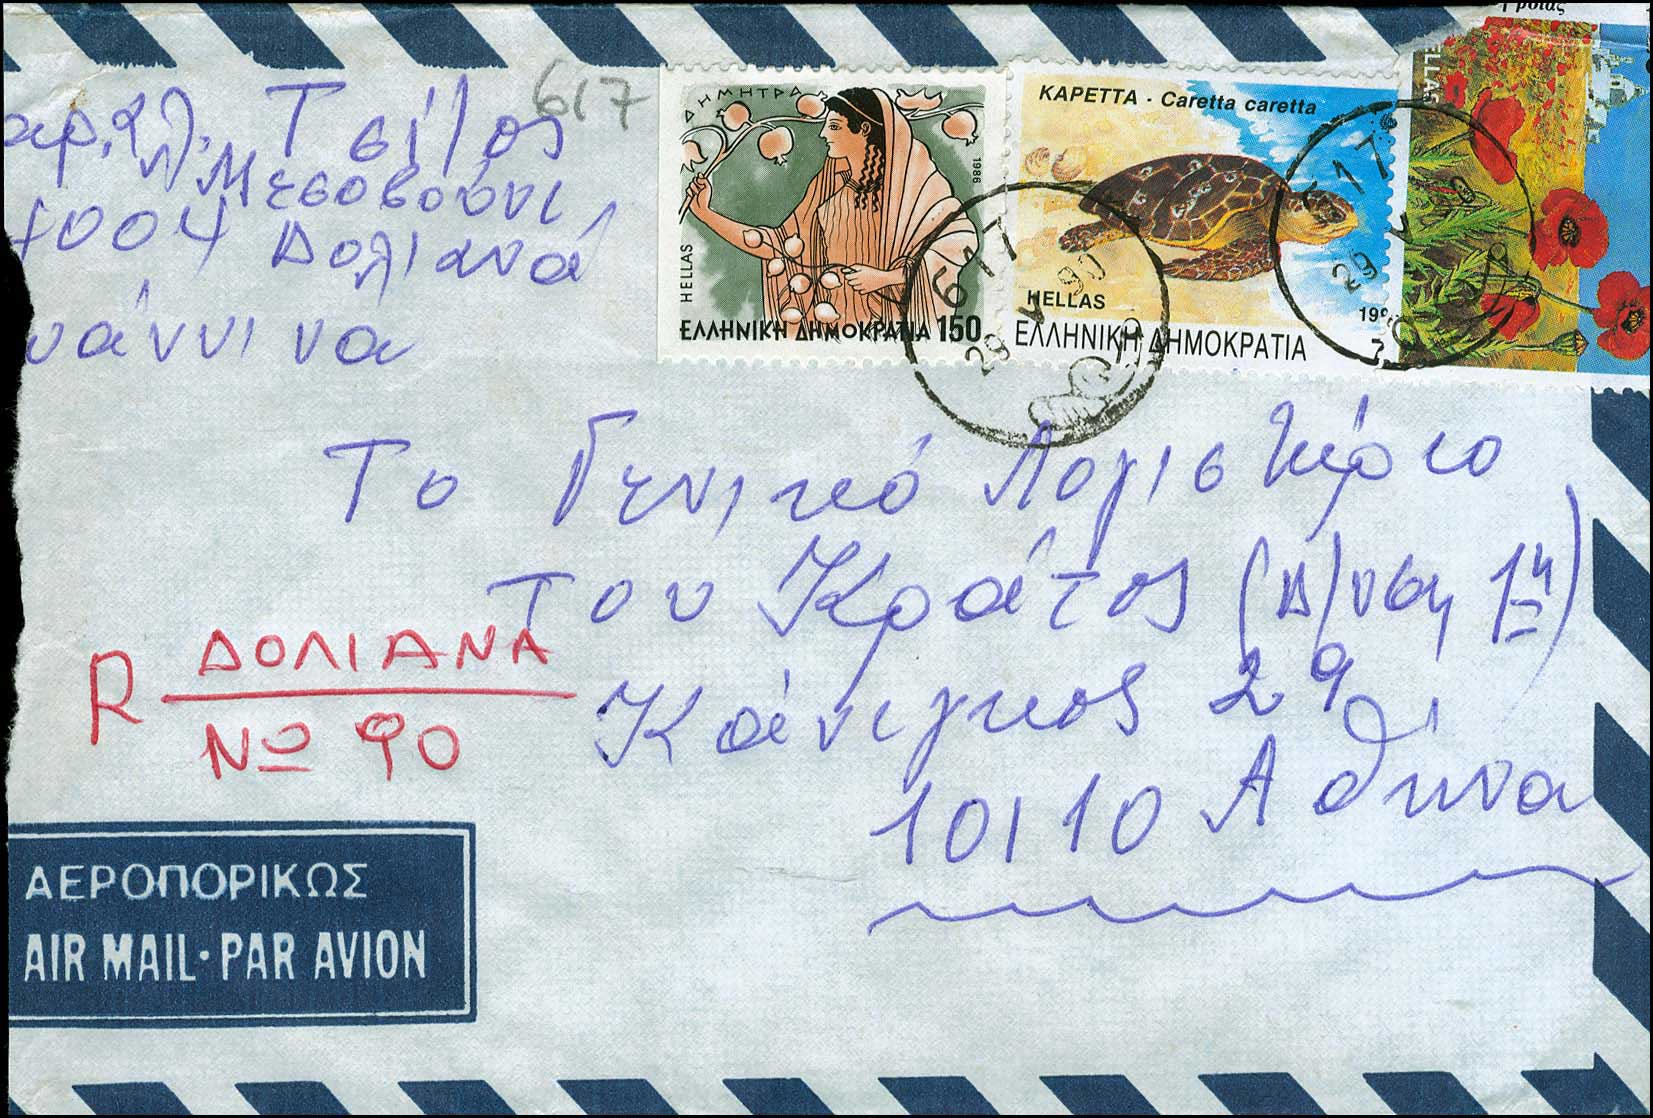 617
Τσίλος
Μεσοβούνι
Δολιανά
ΔΗΜΗΤΡΑ
1986
HELLAS
ΕΛΛΗΝΙΚΗ ΔΗΜΟΚΡΑΤΙΑ 150
ΚΑΡΕΤΤΑ - Caretta caretta
HELLAS
ΕΛΛΗΝΙΚΗ ΔΗΜΟΚΡΑΤΙΑ
617
29 V 90
617
29
Το Γενικό Λογιστήριο
του Κράτος (Δ/νση 1η)
Κάνιγκος 29
10110 Αθήνα
R ΔΟΛΙΑΝΑ
Νο 90
ΑΕΡΟΠΟΡΙΚΩΣ
AIR MAIL·PAR AVION